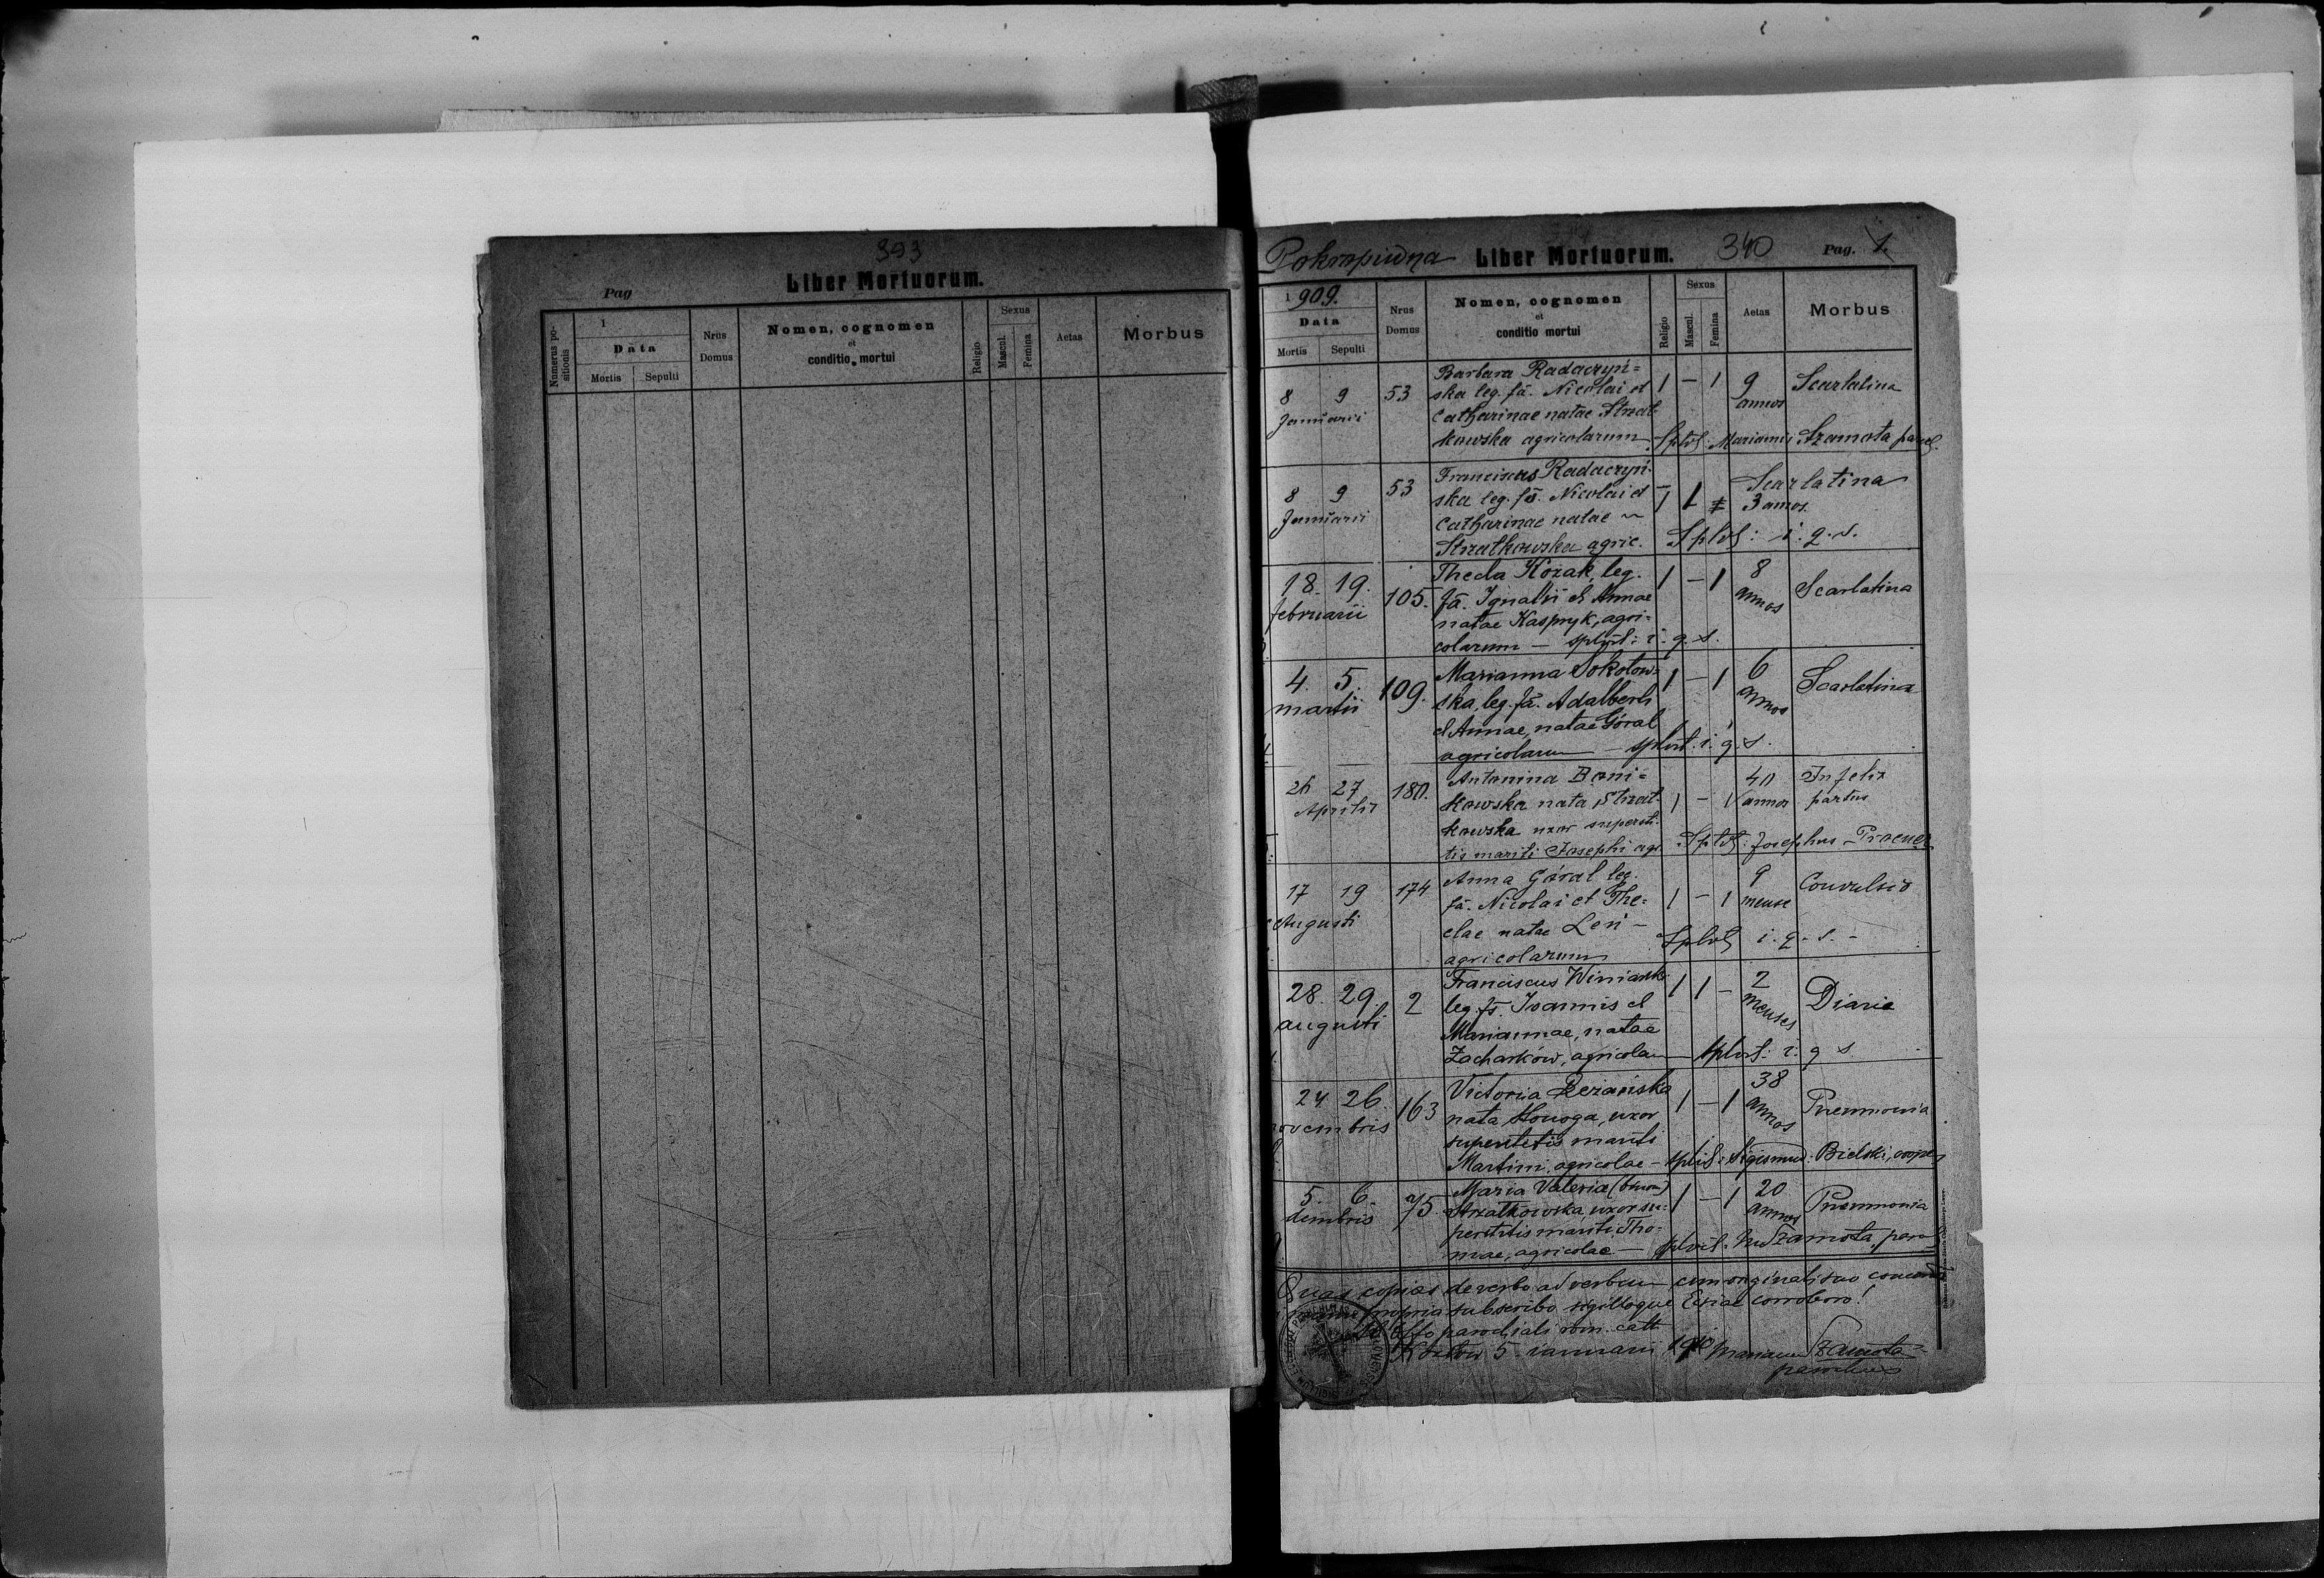 393
Pag
Liber Mortuorum.
Numerus positionis
1
Data
Mortis Sepulti
Nrus Domus
Nomen, cognomen
et
conditio mortui
Religio
Sexus
Mascul. Femina
Aetas
Morbus
Pokropiwna Liber Mortuorum. 340 Pag. 1.
1909.
Data
Mortis Sepulti
Nrus Domus
Nomen, cognomen
et
conditio mortui
Religio
Sexus
Mascul. Femina
Aetas
Morbus
Barbara Radaczyń=
8 9 53 ska leg. fa. Nicolai et 1 – 1 9 Scarlatina
Januarii Catharinae natae Strzat- annos
kowska agricolarum Splvt: Mariam: Szamota
Franciscus Radaczyń-
8 9 53 ska leg. fs. Nicolai et 1 1 3 annos Scarlatina
Januarii Catharinae natae
Strzatkowska agric. Splvt: i. q. s.
Thecla Kozak, leg.
18. 19. 105. fa. Ignatii et Annae 1 – 1 8 annos Scarlatina
februarii natae Kaspryk, agri-
colarum – splvt: i. q. s.
4. 5. 109. Marianna Sokołow- 1 – 1 6 annos Scarlatina
martii ska, leg. fa. Adalberti
et Annae, natae Góral
agricolarum – splvt. i. q. s.
26 27 180. Antonina Bani= 40 Infelix
Aprilis kowska nata Strzat- 1 – 1 annos partus
kowska uxor supersti-
tis mariti Josephi agr. Splvt: Josephus
17 19 174 Anna Góral leg. 9 Convulsio
Augusti fa. Nicolai et The= 1 – 1 mense
clae natae Leń –
agricolarum Splvt i. q. s. –
Franciscus Winiarski
28. 29. 2 leg. fs. Joannis et 1 1 – 2 menses Diarie
augusti Mariannae, natae
Zacharków, agricolarum splvt: i. q. s.
24 26 163 Victoria Leżańska 1 – 1 38 annos Pneumonia
novembris nata Howoga, uxor
superstitis mariti
Martini, agricolae – splvit: Sigismund: Bielski, coop.
5. 6. 75. Maria Valeria 1 – 1 20 annos Pneumonia
Strzatkowska, uxor su-
perstitis mariti Tho-
mae, agricolae – splvit. Szamota, par
Quas copias de verbo ad verbum cum originali suo
propria subscribo sigilloque Ecciae corroboro!
parochiali rom. cath
Kozłów 5. ianuarii 1910 Marianus Szamota
parochus